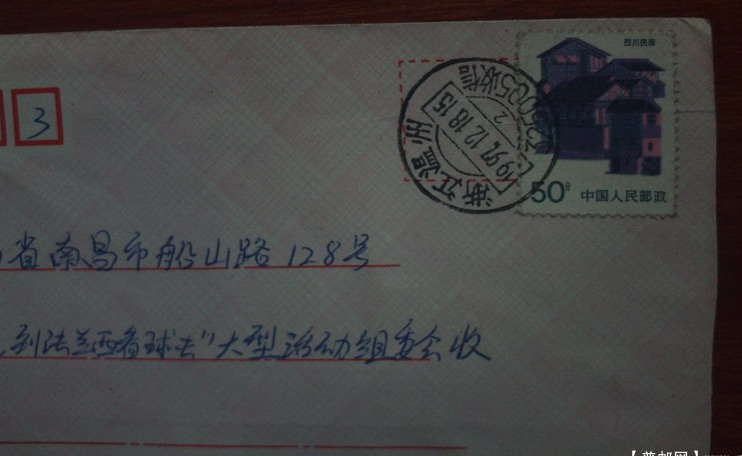 四川民居
50分
中国人民邮政
浙江温州
325025收信
1997.12.18.15
2
3
省南昌市船山路128号
到法兰西看球去"大型活动组委会收
【普邮网】